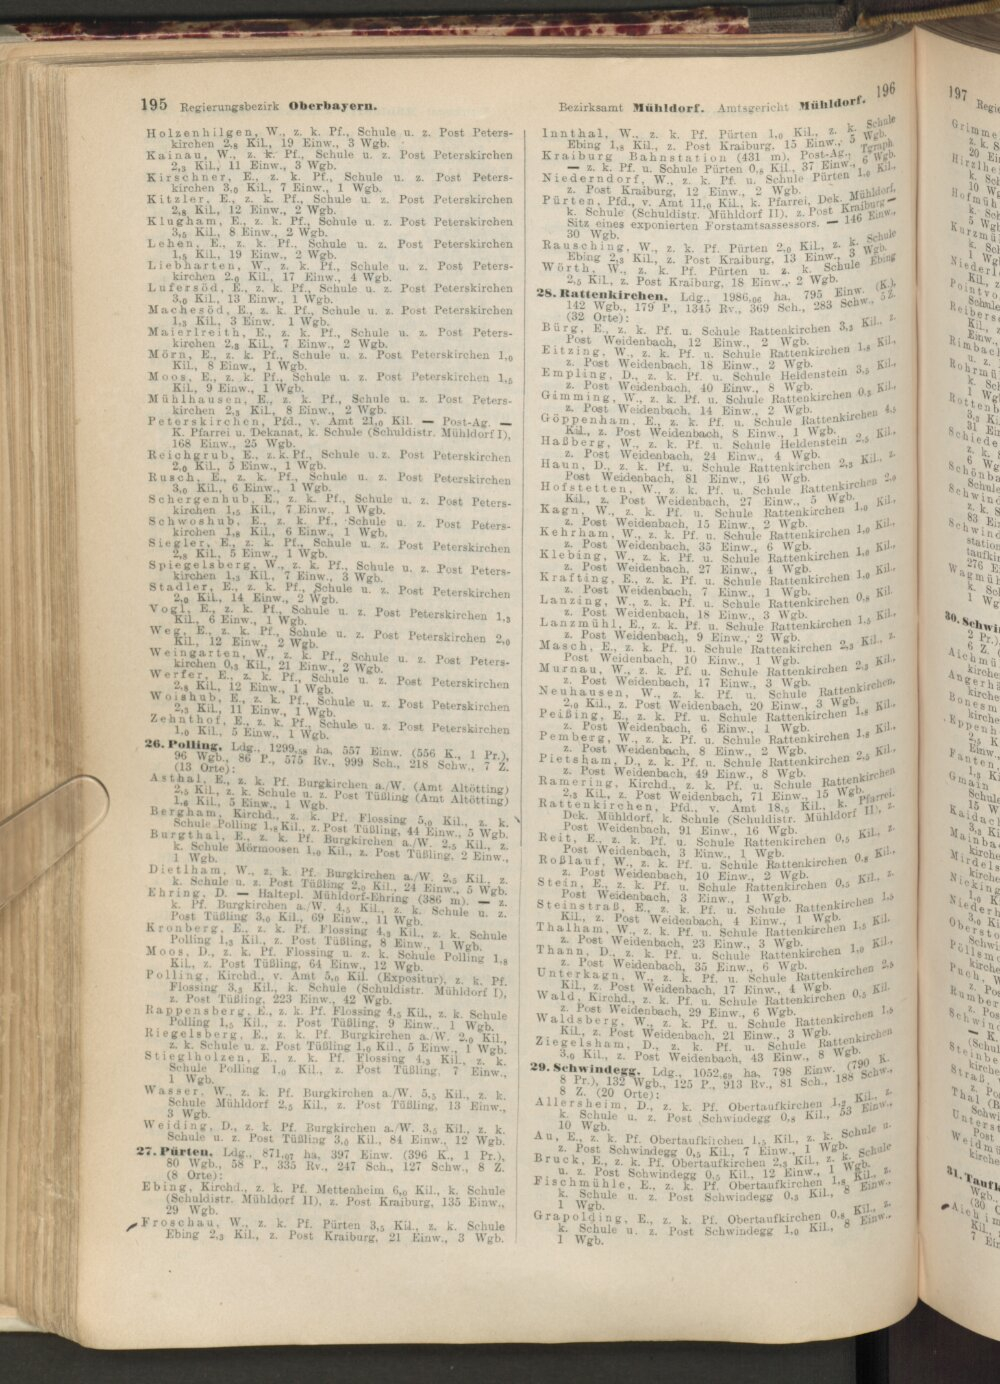 195 Regierungsbezirk Oberbayern.
Holzenhilgen, W., z. k. Pf., Schule u. z. Post Peters-
kirchen 2,8 Kil., 19 Einw., 3 Wgb.
Kainau, W., z. k. Pf., Schule u. z. Post Peterskirchen
2,3 Kil., 11 Einw., 3 Wgb.
Kirschner, E., z. k. Pf., Schule u. z. Post Peters-
kirchen 3,0 Kil., 7 Einw., 1 Wgb.
Kitzler, E., z. k. Pf., Schule u. z. Post Peterskirchen
2,8 Kil., 12 Einw., 2 Wgb.
Klugham, E., z. k. Pf., Schule u. z. Post Peterskirchen
3,5 Kil., 8 Einw., 2 Wgb.
Lehen, E., z. k. Pf., Schule u. z. Post Peterskirchen
1,5 Kil., 19 Einw., 2 Wgb.
Liebharten, W., z. k. Pf., Schule u. z. Post Peters-
kirchen 2,0 Kil., 17 Einw., 4 Wgb.
Lufersöd, E., z. k. Pf., Schule u. z. Post Peterskirchen
3,0 Kil., 13 Einw., 1 Wgb.
Machesöd, E., z. k. Pf., Schule u. z. Post Peterskirchen
1,3 Kil., 3 Einw. 1 Wgb.
Maierlreith, E., z. k. Pf., Schule u. z. Post Peters-
kirchen 2,8 Kil., 7 Einw., 2 Wgb.
Mörn, E., z. k. Pf., Schule u. z. Post Peterskirchen 1,0
Kil., 8 Einw., 1 Wgb.
Moos, E., z. k. Pf., Schule u. z. Post Peterskirchen 1,5
Kil., 9 Einw., 1 Wgb.
Mühlhausen, E., z. k. Pf., Schule u. z. Post Peters-
kirchen 2,3 Kil., 8 Einw., 2 Wgb.
Peterskirchen, Pfd., v. Amt 21,0 Kil. — Post-Ag. —
K. Pfarrei u. Dekanat, k. Schule (Schuldistr. Mühldorf I),
168 Einw., 25 Wgb.
Reichgrub, E., z. k. Pf., Schule u. z. Post Peterskirchen
2,0 Kil., 5 Einw., 1 Wgb.
Rusch, E., z. k. Pf., Schule u. z. Post Peterskirchen
3,0 Kil., 6 Einw., 1 Wgb.
Schergenhub, E., z. k. Pf., Schule u. z. Post Peters-
kirchen 1,5 Kil., 7 Einw., 1 Wgb.
Schwoshub, E., z. k. Pf., Schule u. z. Post Peters-
kirchen 1,8 Kil., 6 Einw., 1 Wgb.
Siegler, E., z. k. Pf., Schule u. z. Post Peterskirchen
2,8 Kil., 5 Einw., 1 Wgb.
Spiegelsberg, W., z. k. Pf., Schule u. z. Post Peters-
kirchen 1,3 Kil., 7 Einw., 3 Wgb.
Stadler, E., z. k. Pf., Schule u. z. Post Peterskirchen
2,0 Kil., 14 Einw., 2 Wgb.
Vogl, E., z. k. Pf., Schule u. z. Post Peterskirchen 1,3
Kil., 6 Einw., 1 Wgb.
Weg, E., z. k. Pf., Schule u. z. Post Peterskirchen 2,0
Kil., 12 Einw., 2 Wgb.
Weingarten, W., z. k. Pf., Schule u. z. Post Peters-
kirchen 0,3 Kil., 21 Einw., 2 Wgb.
Werfer, E., z. k. Pf., Schule u. z. Post Peterskirchen
2,8 Kil., 12 Einw., 1 Wgb.
Woishub, E., z. k. Pf., Schule u. z. Post Peterskirchen
2,3 Kil., 11 Einw., 1 Wgb.
Zehnthof, E., z. k. Pf., Schule u. z. Post Peterskirchen
1,0 Kil., 5 Einw., 1 Wgb.
26. Polling, Ldg., 1299,58 ha, 557 Einw. (556 K., 1 Pr.),
96 Wgb., 86 P., 575 Rv., 999 Sch., 218 Schw., 7 Z.
(13 Orte):
Asthal, E., z. k. Pf. Burgkirchen a./W. (Amt Altötting)
2,5 Kil., z. k. Schule u. z. Post Tüßling (Amt Altötting)
1,6 Kil., 5 Einw., 1 Wgb.
Bergham, Kirchd., z. k. Pf. Flossing 5,0 Kil., z. k.
Schule Polling 1,8 Kil., z. Post Tüßling, 44 Einw., 5 Wgb.
Burgthal, E., z. k. Pf. Burgkirchen a./W. 2,5 Kil., z.
k. Schule Mörmoosen 1,0 Kil., z. Post Tüßling, 2 Einw.,
1 Wgb.
Dietlham, W., z. k. Pf. Burgkirchen a./W. 2,5 Kil., z.
k. Schule u. z. Post Tüßling 2,0 Kil., 24 Einw., 5 Wgb.
Ehring, D. — Haltepl. Mühldorf-Ehring (386 m). — z.
k. Pf. Burgkirchen a./W. 4,5 Kil., z. k. Schule u. z.
Post Tüßling 3,0 Kil., 69 Einw., 11 Wgb.
Kronberg, E., z. k. Pf. Flossing 4,3 Kil., z. k. Schule
Polling 1,3 Kil., z. Post Tüßling, 8 Einw., 1 Wgb.
Moos, D., z. k. Pf. Flossing u. z. k. Schule Polling 1,8
Kil., z. Post Tüßling, 64 Einw., 12 Wgb.
Polling, Kirchd., v. Amt 5,0 Kil. (Expositur), z. k. Pf.
Flossing 3,5 Kil., k. Schule (Schuldistr. Mühldorf I),
z. Post Tüßling, 223 Einw., 42 Wgb.
Rappensberg, E., z. k. Pf. Flossing 4,5 Kil., z. k. Schule
Polling 1,5 Kil., z. Post Tüßling, 9 Einw., 1 Wgb.
Riegelsberg, E., z. k. Pf. Burgkirchen a./W. 2,0 Kil.,
z. k. Schule u. z. Post Tüßling 1,0 Kil., 5 Einw., 1 Wgb.
Stieglholzen, E., z. k. Pf. Flossing 4,3 Kil., z. k.
Schule Polling 1,0 Kil., z. Post Tüßling, 7 Einw.,
1 Wgb.
Wasser, W., z. k. Pf. Burgkirchen a./W. 5,5 Kil., z. k.
Schule Mühldorf 2,5 Kil., z. Post Tüßling, 13 Einw.,
3 Wgb.
Weiding, D., z. k. Pf. Burgkirchen a./W. 3,5 Kil., z. k.
Schule u. z. Post Tüßling 3,0 Kil., 84 Einw., 12 Wgb.
27. Pürten, Ldg., 871,07 ha, 397 Einw. (396 K., 1 Pr.),
80 Wgb., 58 P., 335 Rv., 247 Sch., 127 Schw., 8 Z.
(8 Orte):
Ebing, Kirchd., z. k. Pf. Mettenheim 6,0 Kil., k. Schule
(Schuldistr. Mühldorf II), z. Post Kraiburg, 135 Einw.,
29 Wgb.
Froschau, W., z. k. Pf. Pürten 3,5 Kil., z. k. Schule
Ebing 2,3 Kil., z. Post Kraiburg, 21 Einw., 3 Wgb.
Bezirksamt Mühldorf. Amtsgericht Mühldorf. 196
Innthal, W., z. k. Pf. Pürten 1,0 Kil., z. k. Schule
Ebing 1,8 Kil., z. Post Kraiburg, 15 Einw., 5 Wgb.
Kraiburg Bahnstation (431 m). Post-Ag., Tgraph
— z. k. Pf. u. Schule Pürten 0,8 Kil., 37 Einw., 6 Wgb.
Niederndorf, W., z. k. Pf. u. Schule Pürten 1,0 Kil.,
z. Post Kraiburg, 12 Einw., 2 Wgb.
Pürten, Pfd., v. Amt 11,0 Kil., k. Pfarrei, Dek. Mühldorf,
k. Schule (Schuldistr. Mühldorf II), z. Post Kraiburg —
Sitz eines exponierten Forstamtsassessors. — 146 Einw.,
30 Wgb.
Rausching, W., z. k. Pf. Pürten 2,0 Kil., z. k. Schule
Ebing 2,3 Kil., z. Post Kraiburg, 13 Einw., 3 Wgb.
Wörth, W., z. k. Pf. Pürten u. z. k. Schule Ebing
2,5 Kil., z. Post Kraiburg, 18 Einw., 2 Wgb.
28. Rattenkirchen, Ldg., 1986,06 ha, 795 Einw. (K.),
142 Wgb., 179 P., 1345 Rv., 369 Sch., 283 Schw., 5 Z.
(32 Orte):
Bürg, E., z. k. Pf. u. Schule Rattenkirchen 3,3 Kil., z.
Post Weidenbach, 12 Einw., 2 Wgb.
Eitzing, W., z. k. Pf. u. Schule Rattenkirchen 1,8 Kil.,
z. Post Weidenbach, 18 Einw., 2 Wgb.
Empling, D., z. k. Pf. u. Schule Heldenstein 3,5 Kil.,
z. Post Weidenbach, 40 Einw., 8 Wgb.
Gimming, W., z. k. Pf. u. Schule Rattenkirchen 0,8 Kil.,
z. Post Weidenbach, 14 Einw., 2 Wgb.
Göppenham, E., z. k. Pf. u. Schule Rattenkirchen 4,5
Kil., z. Post Weidenbach, 8 Einw., 1 Wgb.
Haßberg, W., z. k. Pf. u. Schule Heldenstein 2,5 Kil.,
z. Post Weidenbach, 24 Einw., 4 Wgb.
Haun, D., z. k. Pf. u. Schule Rattenkirchen 2,3 Kil., z.
Post Weidenbach, 81 Einw., 16 Wgb.
Hofstetten, W., z. k. Pf. u. Schule Rattenkirchen 2,0
Kil., z. Post Weidenbach, 27 Einw., 5 Wgb.
Kagn, W., z. k. Pf. u. Schule Rattenkirchen 1,0 Kil.,
z. Post Weidenbach, 15 Einw., 2 Wgb.
Kehrham, W., z. k. Pf. u. Schule Rattenkirchen 1,0 Kil.,
z. Post Weidenbach, 35 Einw., 6 Wgb.
Klebing, W., z. k. Pf. u. Schule Rattenkirchen 1,0 Kil.,
z. Post Weidenbach, 27 Einw., 4 Wgb.
Krafting, E., z. k. Pf. u. Schule Rattenkirchen 1,0 Kil.,
z. Post Weidenbach, 7 Einw., 1 Wgb.
Lanzing, W., z. k. Pf. u. Schule Rattenkirchen 0,8 Kil.
z. Post Weidenbach, 18 Einw., 3 Wgb.
Lanzmühl, E., z. k. Pf. u. Schule Rattenkirchen 1,5 Kil.,
z. Post Weidenbach, 9 Einw., 2 Wgb.
Masch, E., z. k. Pf. u. Schule Rattenkirchen 2,3 Kil., z.
Post Weidenbach, 10 Einw., 1 Wgb.
Murnau, W., z. k. Pf. u. Schule Rattenkirchen 2,3 Kil.,
z. Post Weidenbach, 17 Einw., 3 Wgb.
Neuhausen, W., z. k. Pf. u. Schule Rattenkirchen,
2,0 Kil., z. Post Weidenbach, 20 Einw., 3 Wgb.
Peißing, E., z. k. Pf. u. Schule Rattenkirchen 1,8 Kil.,
z. Post Weidenbach, 6 Einw., 1 Wgb.
Pemberg, W., z. k. Pf. u. Schule Rattenkirchen 1,8 Kil.,
z. Post Weidenbach, 8 Einw., 2 Wgb.
Pietsham, D., z. k. Pf. u. Schule Rattenkirchen 2,5 Kil.,
z. Post Weidenbach, 49 Einw., 8 Wgb.
Ramering, Kirchd., z. k. Pf. u. Schule Rattenkirchen
2,3 Kil., z. Post Weidenbach, 71 Einw., 15 Wgb.
Rattenkirchen, Pfd., v. Amt 18,5 Kil., k. Pfarrei.
Dek. Mühldorf, k. Schule (Schuldistr. Mühldorf II), z.
Post Weidenbach, 91 Einw., 16 Wgb.
Reit, E., z. k. Pf. u. Schule Rattenkirchen 0,5 Kil., z.
Post Weidenbach, 3 Einw., 1 Wgb.
Roßlauf, W., z. k. Pf. u. Schule Rattenkirchen 0,8 Kil.,
z. Post Weidenbach, 10 Einw., 2 Wgb.
Stein, E., z. k. Pf. u. Schule Rattenkirchen 0,5 Kil., z.
Post Weidenbach, 3 Einw., 1 Wgb.
Steinstraß, E., z. k. Pf. u. Schule Rattenkirchen 1,5
Kil., z. Post Weidenbach, 4 Einw., 1 Wgb.
Thalham, W., z. k. Pf. u. Schule Rattenkirchen 1,5 Kil.
z. Post Weidenbach, 23 Einw., 3 Wgb.
Thann, D., z. k. Pf. u. Schule Rattenkirchen 1,0 Kil.,
z. Post Weidenbach, 35 Einw., 6 Wgb.
Unterkagn, W., z. k. Pf. u. Schule Rattenkirchen 2,5
Kil., z. Post Weidenbach, 17 Einw., 4 Wgb.
Wald, Kirchd., z. k. Pf. u. Schule Rattenkirchen 0,5 Kil.
z. Post Weidenbach, 29 Einw., 6 Wgb.
Waldsberg, W., z. k. Pf. u. Schule Rattenkirchen 1,5
Kil., z. Post Weidenbach, 21 Einw., 3 Wgb.
Ziegelsham, D., z. k. Pf. u. Schule Rattenkirchen
3,0 Kil., z. Post Weidenbach, 43 Einw., 8 Wgb.
29. Schwindegg, Ldg., 1052,69 ha, 798 Einw. (790 K.
8 Pr.), 132 Wgb., 125 P., 913 Rv., 81 Sch., 188 Schw.,
8 Z. (20 Orte):
Allersheim, D., z. k. Pf. Obertaufkirchen 1,2 Kil., z.
k. Schule u. z. Post Schwindegg 0,8 Kil., 53 Einw.,
10 Wgb.
Au, E., z. k. Pf. Obertaufkirchen 1,5 Kil., z. k. Schule u.
z. Post Schwindegg 0,5 Kil., 7 Einw., 1 Wgb.
Bruck, E., z. k. Pf. Obertaufkirchen 2,3 Kil., z. k. Schule
u. z. Post Schwindegg 0,5 Kil., 12 Einw., 1 Wgb.
Fischmühle, E., z. k. Pf. Obertaufkirchen 1,8 Kil., z.
k. Schule u. z. Post Schwindegg 0,3 Kil., 8 Einw.,
1 Wgb.
Grapolding, E., z. k. Pf. Obertaufkirchen 0,8 Kil., z.
k. Schule u. z. Post Schwindegg 1,0 Kil., 8 Einw.,
1 Wgb.
197
30. Schwi
31. Taufk